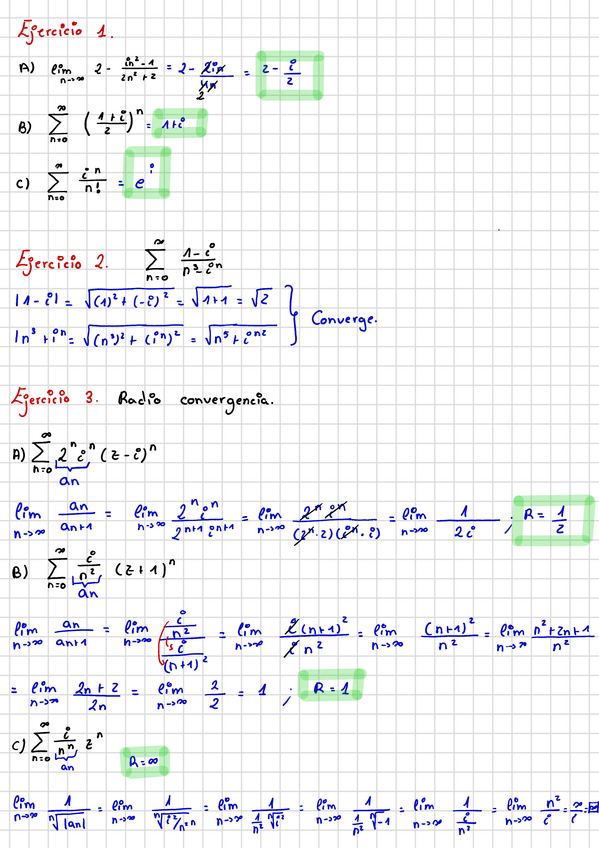 Ejercicio 1.
A) lim n→∞ 2 - (in² - 1)/(2n² + 2) = 2 - 2in/4n 2 = 2 - i/2
B) ∞ Σ n=0 ((1+i)/2)ⁿ = 1+i
C) ∞ Σ n=0 iⁿ/n! = eⁱ
Ejercicio 2. ∞ Σ n=0 (1-i)/(n³-iⁿ)
|1-i| = √((1)² + (-i)²) = √(1+1) = √2
|n³ + iⁿ = √((n³)² + (iⁿ)²) = √(n⁵ + iⁿ²) } Converge.
Ejercicio 3. Radio convergencia.
A) ∞ Σ n=0 2ⁿ iⁿ (z-i)ⁿ
an
lim n→∞ an/an+1 = lim n→∞ 2ⁿ iⁿ/2ⁿ⁺¹ iⁿ⁺¹ = lim n→∞ 2ⁿ iⁿ/(2ⁿ·2)(iⁿ·i) = lim n→∞ 1/2i ; R = 1/2
B) ∞ Σ n=0 i/n² (z+1)ⁿ
an
lim n→∞ an/an+1 = lim n→∞ (i/n²)/(i/(n+1)²) = lim n→∞ i(n+1)²/i n² = lim n→∞ (n+1)²/n² = lim n→∞ (n²+2n+1)/n²
= lim n→∞ (2n+2)/2n = lim n→∞ 2/2 = 1 ; R = 1
C) ∞ Σ n=0 i/nⁿ zⁿ R = ∞
an
lim n→∞ 1/ⁿ√|an| = lim n→∞ 1/ⁿ√(i²/n²ⁿ) = lim n→∞ 1/(1/n² ⁿ√i²) = lim n→∞ 1/(1/n² ⁿ√-1) = lim n→∞ 1/(i/n²) = lim n→∞ n²/i = ∞/i = ∞